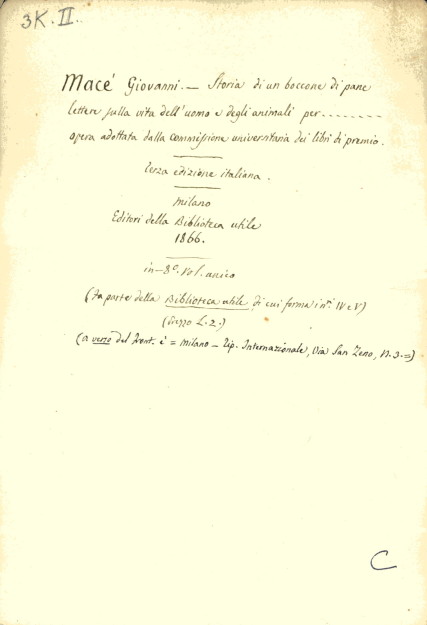 3K.II.
Macé Giovanni. — Storia di un boccone di pane
lettere sulla vita dell'uomo e degli animali per........
opera adottata dalla commissione universitaria dei libri di premio.
terza edizione italiana.
Milano
Editori della Biblioteca utile
1866.
in-8º. Vol. unico
(Fa parte della Biblioteca utile, di cui forma i nⁱ. IV e V)
(Prezzo L. 2.)
(a verso del Front. è = Milano — Tip. Internazionale, Via San Zeno, N. 3. =)
C